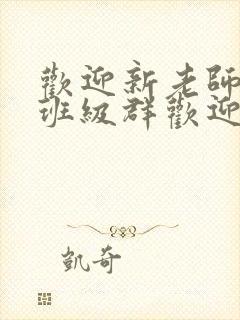 歡迎新老師
班級群歡迎
凱奇